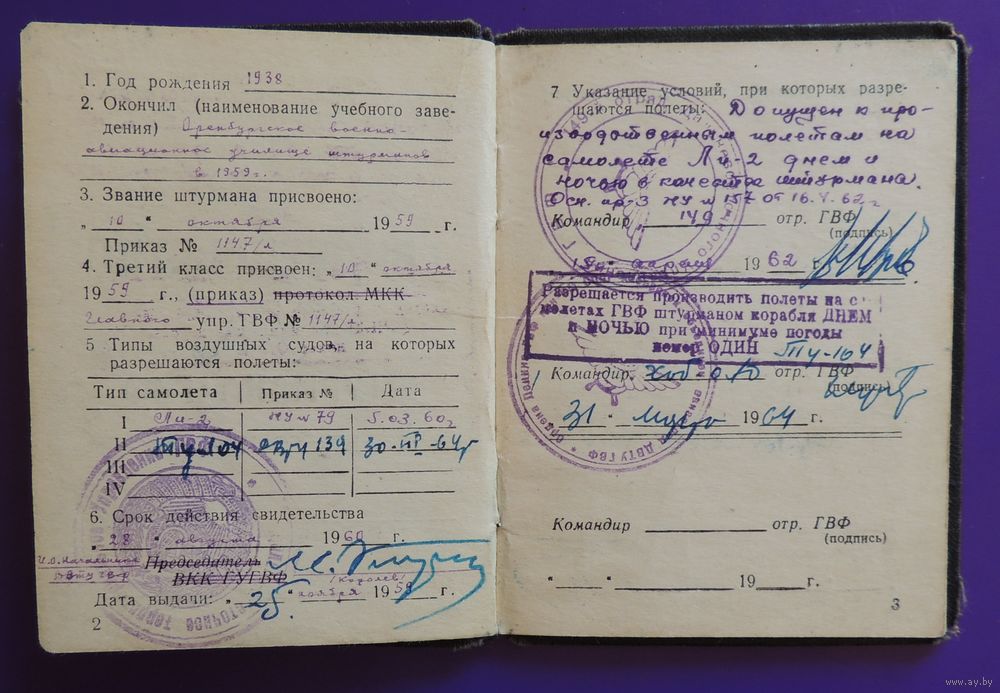 1. Год рождения 1938
2. Окончил (наименование учебного заве-
дения) Оренбургское военно-
авиационное училище штурманов
в 1959 г.
3. Звание штурмана присвоено:
„ 10 “ октября 1959 г.
Приказ № 1147/л
4. Третий класс присвоен: „ 10 “ октября
1959 г., (приказ) протокол МКК
Главного упр. ГВФ № 1147/л.
5 Типы воздушных судов, на которых
разрешаются полеты:
Тип самолета Приказ № Дата
I Ли-2 НУ №79 5.03.60г
II Ту-104 139 30-III-64г
III
IV
6. Срок действия свидетельства
„ 28 “ августа 1960 г.
И.О. Начальника Председатель
ВТУ ГВФ ВКК ГУГВФ
/Королев/
Дата выдачи: „ 25 “ ноября 1959 г.
2
7 Указание условий, при которых разре-
шаются полеты: Допущен к про-
изводственным полетам на
самолете Ли-2 днем и
ночью в качестве штурмана.
Осн. пр-з НУ № 157 от 16.4.62г
Командир 149 отр. ГВФ
(подпись)
1962
Разрешается производить полеты на с
молетах ГВФ штурманом корабля ДНЕМ
и НОЧЬЮ при минимуме погоды
номер ОДИН Ту-104
Командир Хаб. ОАО отр. ГВФ
(подпись)
31 Марта 1964 г.
Командир отр. ГВФ
(подпись)
„ “ 19 г.
3
www.ay.by